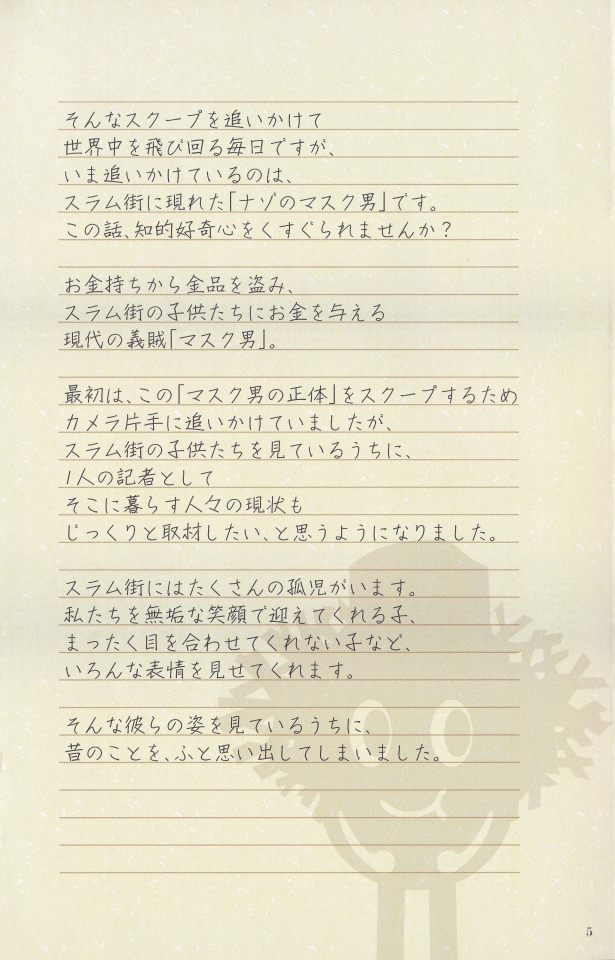 そんなスクープを追いかけて
世界中を飛び回る毎日ですが、
いま追いかけているのは、
スラム街に現れた「ナゾのマスク男」です。
この話、知的好奇心をくすぐられませんか？
お金持ちから金品を盗み、
スラム街の子供たちにお金を与える
現代の義賊「マスク男」。
最初は、この「マスク男の正体」をスクープするため
カメラ片手に追いかけていましたが、
スラム街の子供たちを見ているうちに、
1人の記者として
そこに暮らす人々の現状も
じっくりと取材したい、と思うようになりました。
スラム街にはたくさんの孤児がいます。
私たちを無垢な笑顔で迎えてくれる子、
まったく目を合わせてくれない子など、
いろんな表情を見せてくれます。
そんな彼らの姿を見ているうちに、
昔のことを、ふと思い出してしまいました。
5